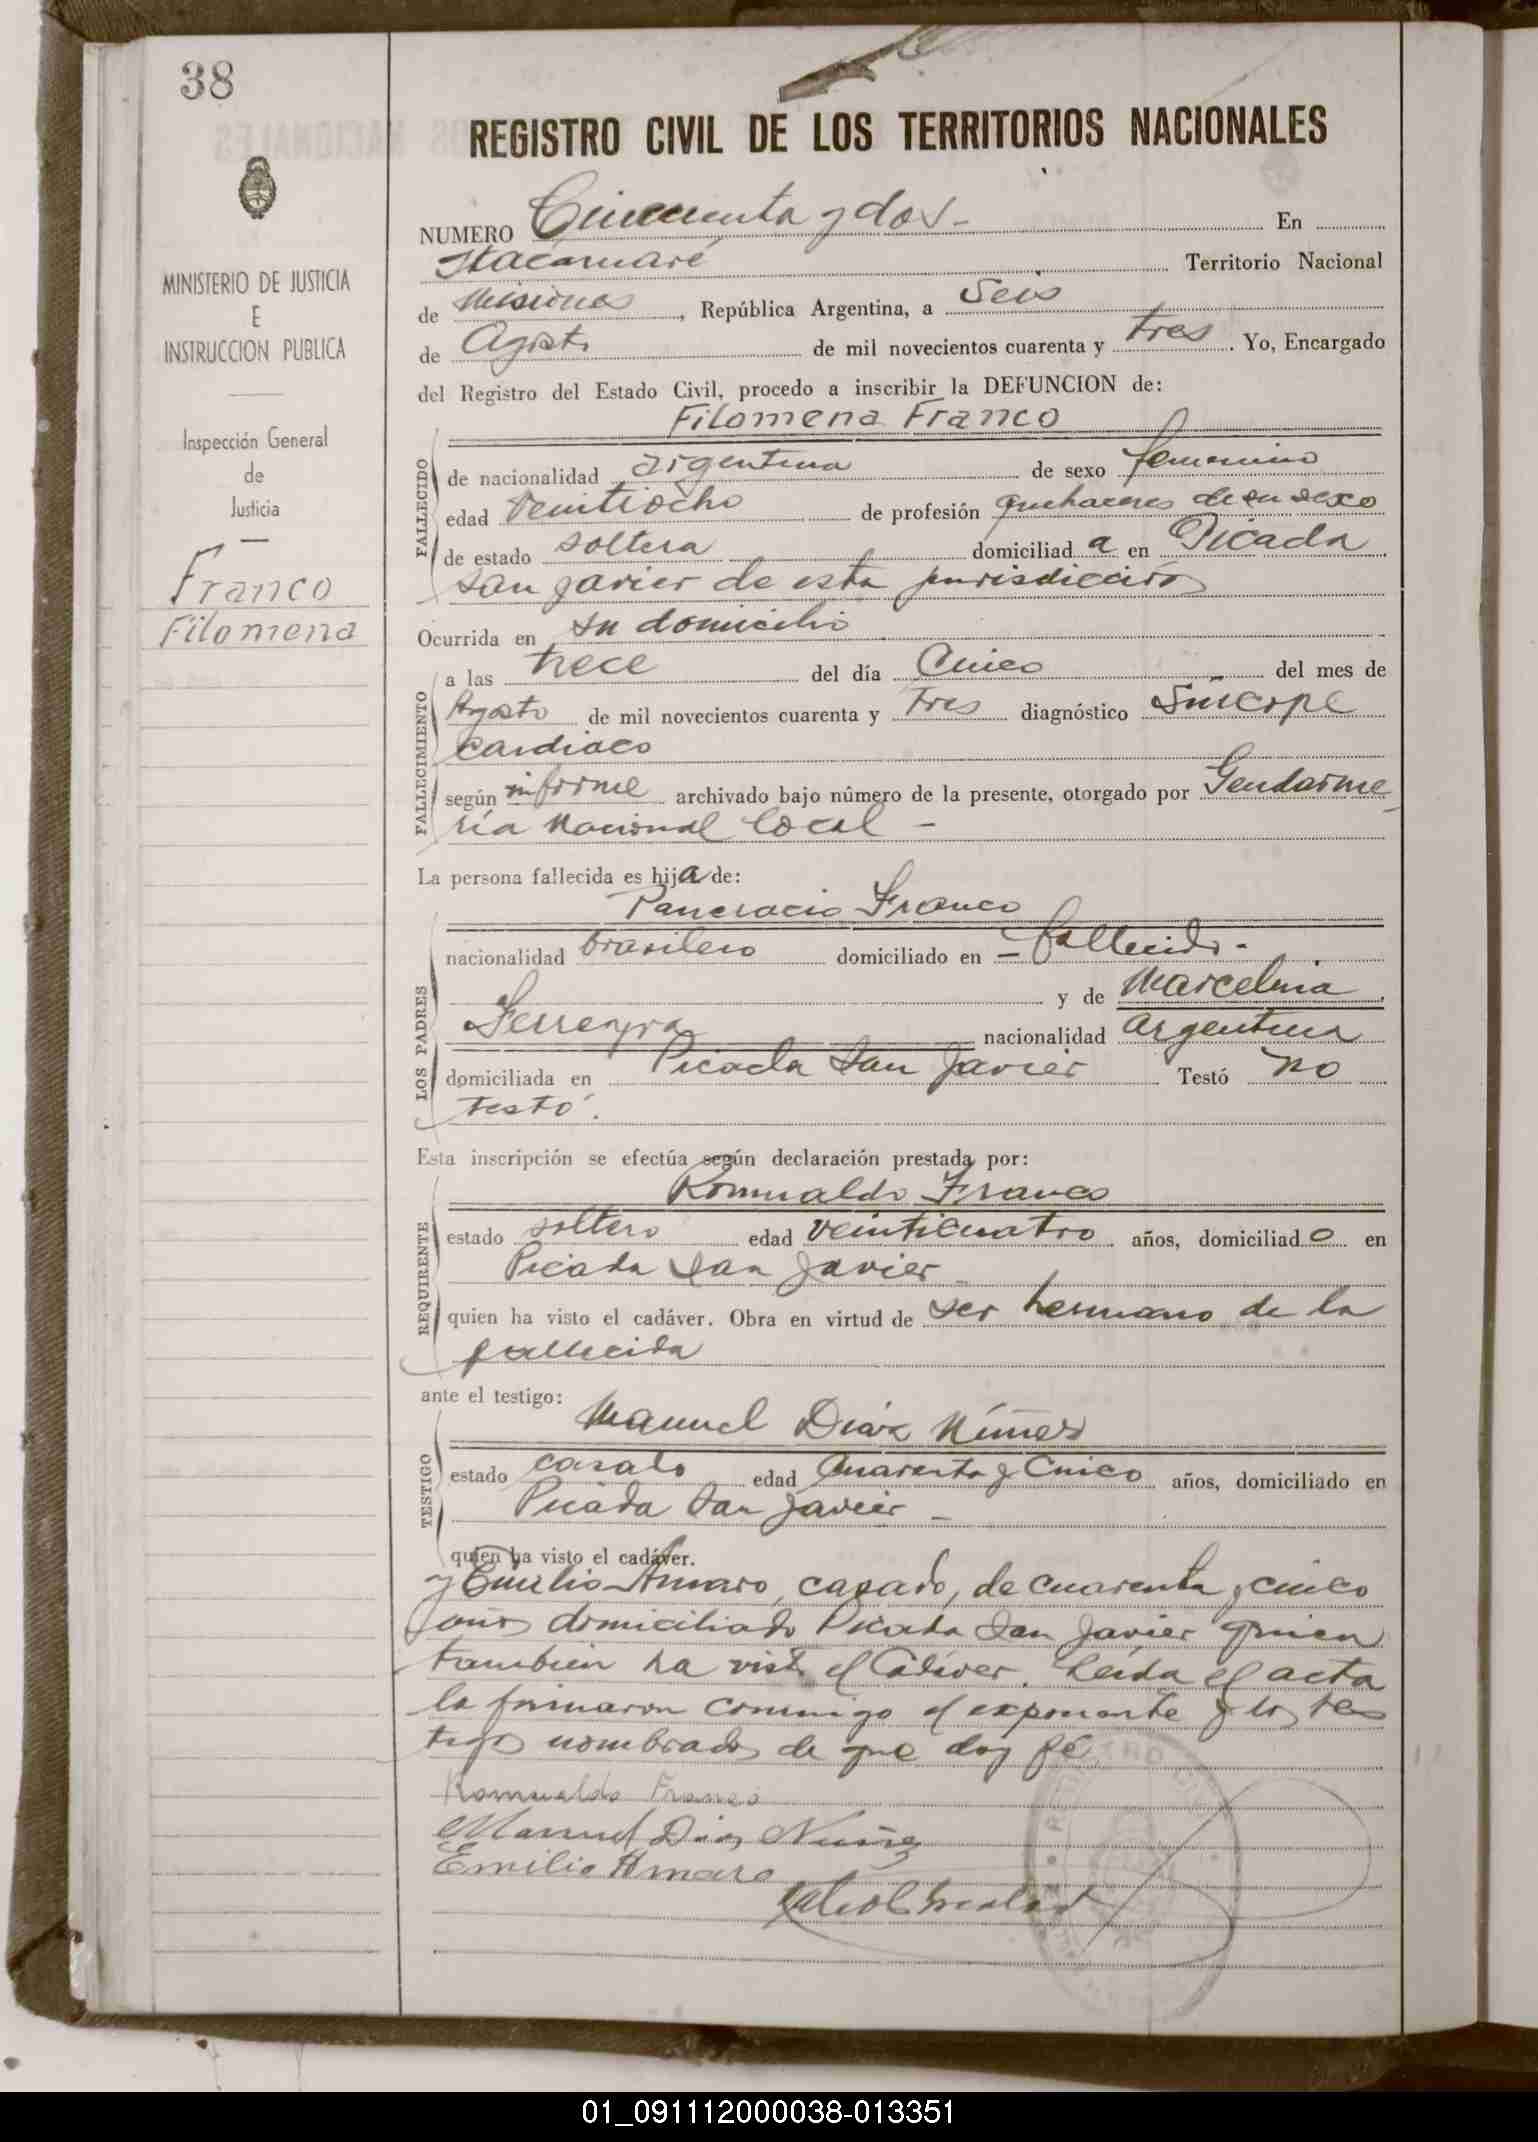 38
REGISTRO CIVIL DE LOS TERRITORIOS NACIONALES
MINISTERIO DE JUSTICIA
E
INSTRUCCION PUBLICA
Inspección General
de
Justicia
Franco
Filomena
NUMERO Cincuenta y dos - En
Itacaruaré Territorio Nacional
de Misiones, República Argentina, a Seis
de Agosto de mil novecientos cuarenta y tres. Yo, Encargado
del Registro del Estado Civil, procedo a inscribir la DEFUNCION de:
Filomena Franco
FALLECIDO
de nacionalidad argentina de sexo femenino
edad Veintiocho de profesión quehaceres de su sexo
de estado soltera domiciliada en Picada
San Javier de esta jurisdicción
Ocurrida en su domicilio
FALLECIMIENTO
a las trece del día Cinco del mes de
Agosto de mil novecientos cuarenta y tres diagnóstico Síncope
cardiaco
según informe archivado bajo número de la presente, otorgado por Gendarme-
ria Nacional local -
La persona fallecida es hija de:
Pancracio Franco
LOS PADRES
nacionalidad brasilero domiciliado en - fallecido -
y de Marcelina
Ferreyra nacionalidad Argentina
domiciliada en Picada San Javier Testó no
testó.
Esta inscripción se efectúa según declaración prestada por:
Romualdo Franco
REQUIRENTE
estado soltero edad veinticuatro años, domiciliado en
Picada San Javier -
quien ha visto el cadáver. Obra en virtud de ser hermano de la
fallecida
ante el testigo:
Manuel Diáz Núñez
TESTIGO
estado casado edad Cuarenta y Cinco años, domiciliado en
Picada San Javier -
quien ha visto el cadáver.
y Emilio Amaro, casado, de cuarenta y cinco
años domiciliado Picada San Javier quien
tambien ha visto el Cadáver. Leida el acta
la firmaron conmigo el exponente y los tes
tigos nombrados de que doy fé
Romualdo Franco
Manuel Diaz Nuñez
Emilio Amaro
01_091112000038-013351